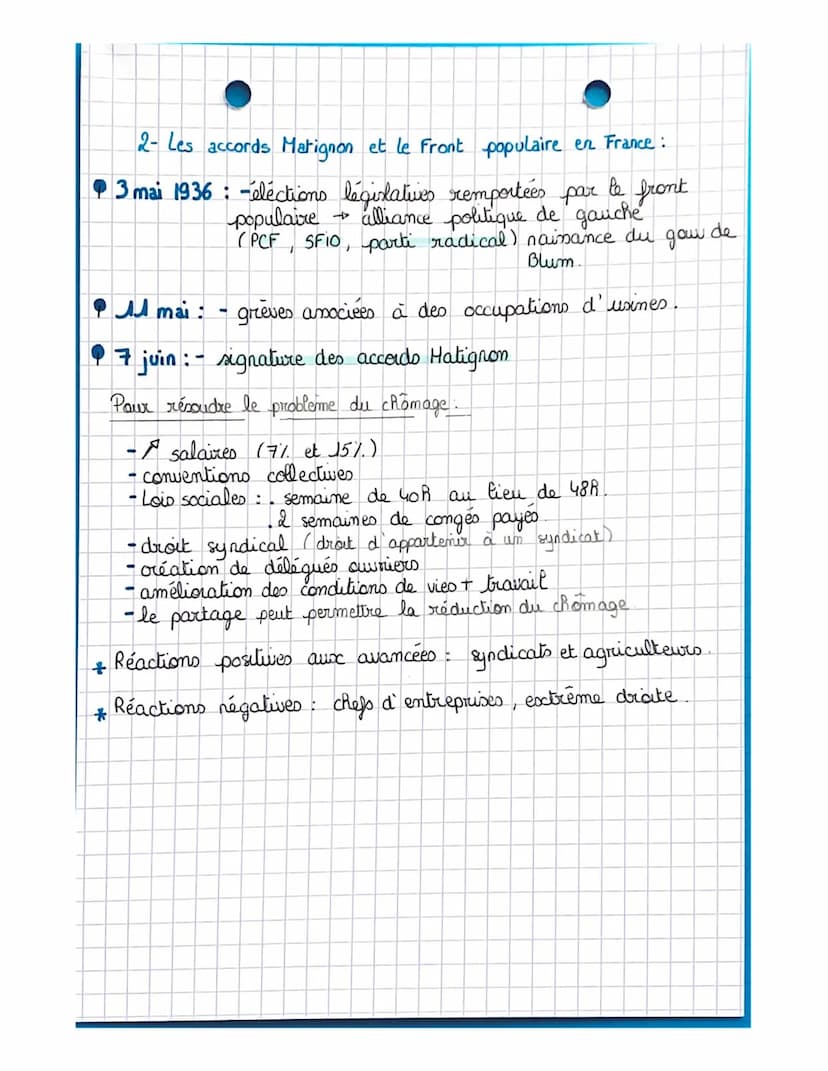 2- Les accords Matignon et le Front populaire en France :
3 mai 1936 : - éléctions législatives remportées par le front
populaire → alliance politique de gauche
(PCF, SFIO, parti radical) naissance du gouv de
Blum.
11 mai : - grèves associées à des occupations d'usines.
7 juin : - signature des accords Matignon
Pour résoudre le problème du chômage.
- ↗ salaires (7% et 15%)
- conventions collectives
- Lois sociales : . semaine de 40h au lieu de 48h.
. 2 semaines de congés payés
- droit syndical (droit d'appartenir à un syndicat)
- création de délégués ouvriers
- amélioration des conditions de vies + travail
- le partage peut permettre la réduction du chômage
* Réactions positives aux avancées : syndicats et agriculteurs.
* Réactions négatives : chefs d'entreprises, extrême droite.